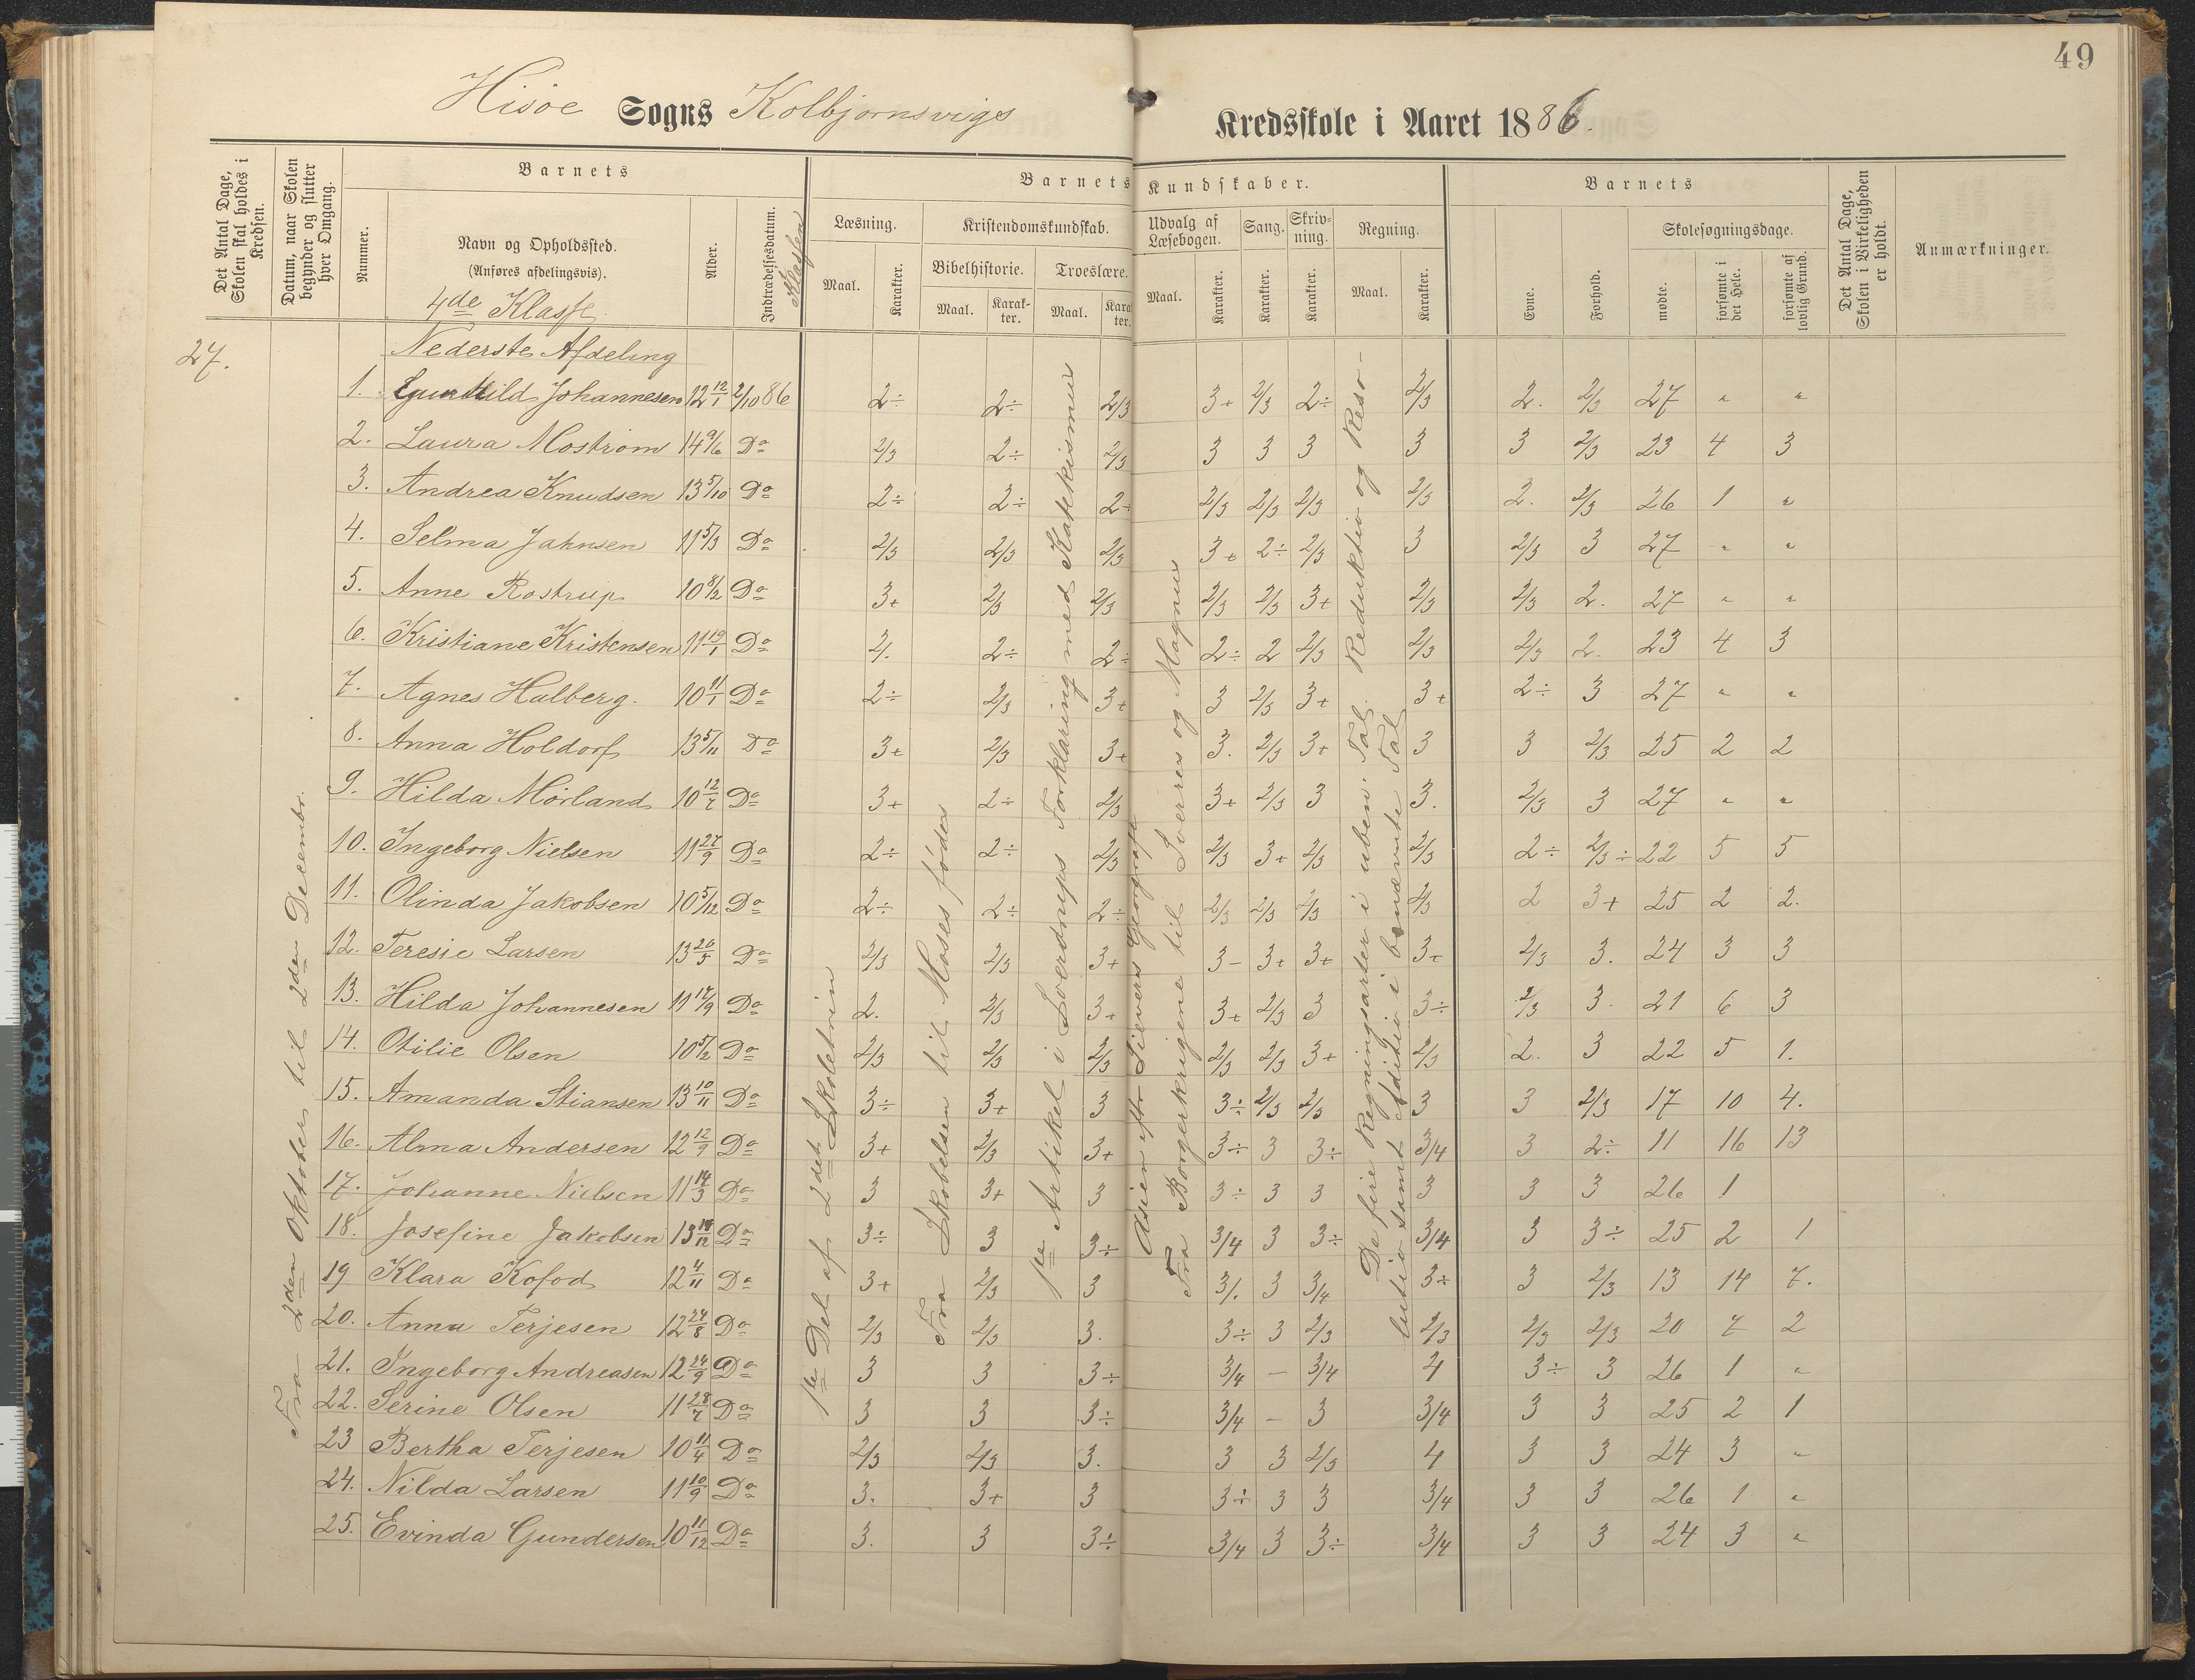 49
Hisöe Sogns Kolbjørnsvigs Kredsskole i Aaret 1886.
Det Antal Dage, Skolen skal holdes i Kredsen.
Datum, naar Skolen begynder og slutter hver Omgang.
Barnets
Nummer.
Navn og Opholdssted.
(Anføres afdelingsvis).
4de Klasse.
Alder.
Indtrædelsesdatum.
i Klassen
Barnets Kundskaber.
Læsning.
Maal.
Karakter.
Kristendomskundskab.
Bibelhistorie.
Maal.
Karakter.
Troeslære.
Maal.
Karakter.
Udvalg af Læsebogen.
Maal.
Karakter.
Sang.
Karakter.
Skrivning.
Karakter.
Regning.
Maal.
Karakter.
Barnets
Evne.
Forhold.
Skolesøgningsdage.
mødte.
forsømte i det Hele.
forsømte af lovlig Grund.
Det Antal Dage, Skolen i Virkeligheden er holdt.
Anmærkninger.
27.
Fra 2den Oktober til 2den Decembr.
Nederste Afdeling
1ste Del af 2det Skoletrin
Fra Skabelsen til Moses fødes
1ste Artikel i Sverdrups Forklaring med Katekismus
Asien efter Sieverss Geografi
Fra Borgerkrigene til Sverres og Magnus
De fire Regningsarter i uben. Tal. Reduktion og Resolution samt Addition i benævnte Tal
1. Gunhild Johannesen 12 12/1 2/10 86 2÷ 2÷ 2/3 3+ 2/3 2÷ 2/3 2. 2/3 27 " "
2. Laura Mostrøm 14 9/6 Do 2/3 2÷ 2/3 3 3 3 3 3 2/3 23 4 3
3. Andrea Knudsen 13 5/10 Do 2÷ 2÷ 2÷ 2/3 2/3 2/3 2/3 2. 2/3 26 1 "
4. Selma Jahnsen 11 5/3 Do 2/3 2/3 2/3 3+ 2÷ 2/3 3 2/3 3 27 " "
5. Anne Rostrup 10 8/2 Do 3+ 2/3 2/3 2/3 2/3 3+ 2/3 2/3 2. 27 " "
6. Kristiane Kristensen 11 19/1 Do 2. 2÷ 2÷ 2÷ 2 2/3 2/3 2/3 2. 23 4 3
7. Agnes Halberg. 10 11/1 Do 2÷ 2/3 3+ 3 2/3 3+ 3+ 2÷ 3 27 " "
8. Anna Holdorf 13 5/11 Do 3+ 2/3 3+ 3. 2/3 3+ 3 3 2/3 25 2 2
9. Hilda Mørland 10 12/7 Do 3+ 2÷ 2/3 3+ 2/3 3 3. 2/3 3 27 " "
10. Ingeborg Nielsen 11 27/9 Do 2÷ 2÷ 2/3 2/3 3+ 2/3 2/3 2÷ 2/3÷ 22 5 5
11. Olinda Jakobsen 10 5/12 Do 2÷ 2÷ 2÷ 2/3 2/3 2/3 2/3 2 3+ 25 2 2.
12. Teresie Larsen 13 26/5 Do 2/3 2/3 3+ 3- 3+ 3+ 3+ 2/3 3. 24 3 3
13. Hilda Johannesen 11 17/9 Do 2. 2/3 3+ 3+ 2/3 3 3÷ 2/3 3. 21 6 3
14. Otilie Olsen 10 5/2 Do 2/3 2/3 2/3 2/3 2/3 3+ 2/3 2. 3 22 5 1.
15. Amanda Stiansen 13 10/11 Do 3÷ 3+ 3 3÷ 2/3 2/3 3 3 2/3 17 10 4.
16. Alma Andersen 12 12/9 Do 3+ 2/3 3+ 3÷ 3 3÷ 3/4 3 2÷ 11 16 13
17. Johanne Nielsen 11 14/3 Do 3 3+ 3 3÷ 3 3 3 3 3 26 1
18. Josefine Jakobsen 13 Do 3÷ 3 3÷ 3/4 3 3÷ 3/4 3 3÷ 25 2 1
19 Klara Kofod 12 4/11 Do 3+ 2/3 3 3/. 3 3/4 3÷ 3 2/3 13 14 7.
20. Anna Terjesen 12 24/8 Do 2/3 2/3 3. 3÷ 3 2/3 2/3 2/3 2/3 20 7 2
21. Ingeborg Andreasen 12 24/9 Do 3 3 3÷ 3/4 - 3/4 4 3÷ 3 26 1 "
22. Serine Olsen 11 28/7 Do 3 3 3÷ 3/4 - 3 3/4 3 3 25 2 1
23 Bertha Terjesen 10 11/4 Do 2/3 2/3 3. 3 3 2/3 4 3 3 24 3 "
24. Nilda Larsen 11 10/9 Do 3. 3+ 3 3÷ 3 3 3/4 3 3 26 1 "
25. Evinda Gundersen 10 11/12 Do 3. 3 3÷ 3/4 3 3÷ 3/4 3 3 24 3 "